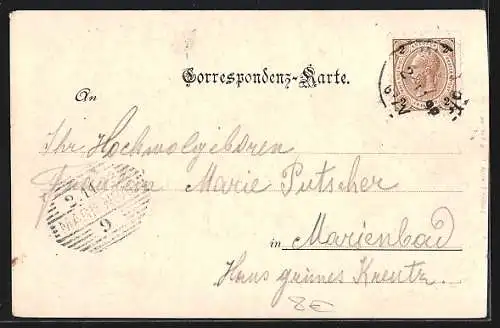 Correspondenz-Karte.
An
Ihr Hochwolgeboren
Fräulein Marie Putscher
in Marienbad
Haus grünes Kreutz.
8€